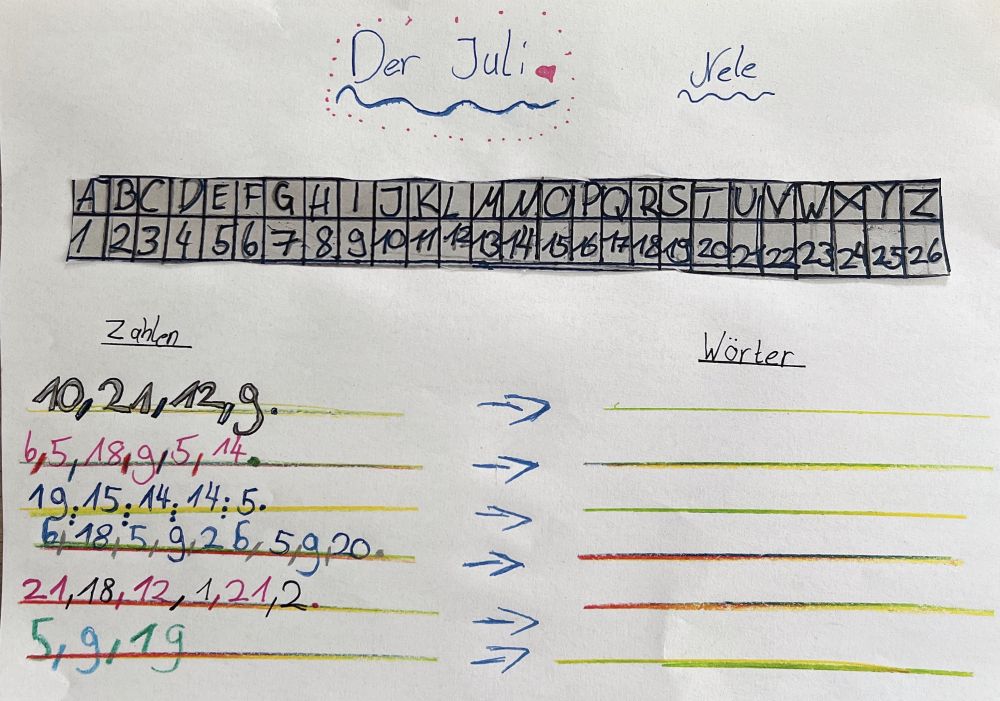 Der Juli
Nele
A B C D E F G H I J K L M N O P Q R S T U V W X Y Z
1 2 3 4 5 6 7 8 9 10 11 12 13 14 15 16 17 18 19 20 21 22 23 24 25 26
Zahlen
Wörter
10, 21, 12, 9.
6, 5, 18, 9, 5, 14.
19, 15, 14, 14, 5.
6, 18, 5, 9, 26, 5, 9, 20.
21, 18, 12, 1, 21, 2.
5, 9, 19